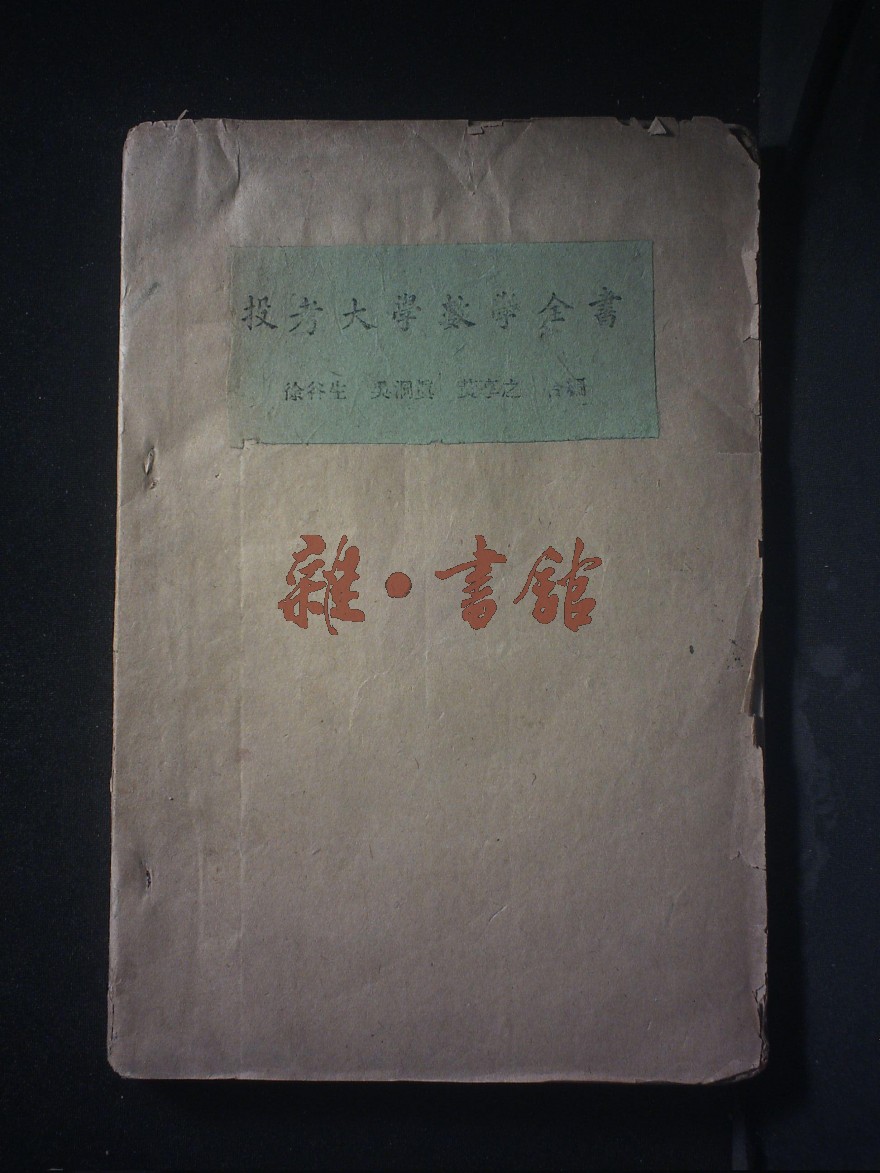 投考大學數學全書
徐谷生 吳潤 之 合編
雜·書館